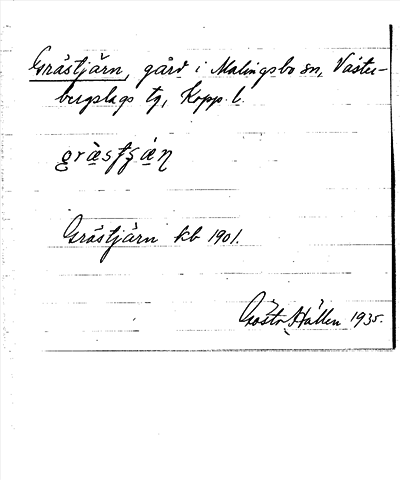 Grästjärn, gård i Malingsbo sn, Väster-
bergslags tg, Kopp. l.
Grästjärn kb 1901.
Gösta Hallen 1935.